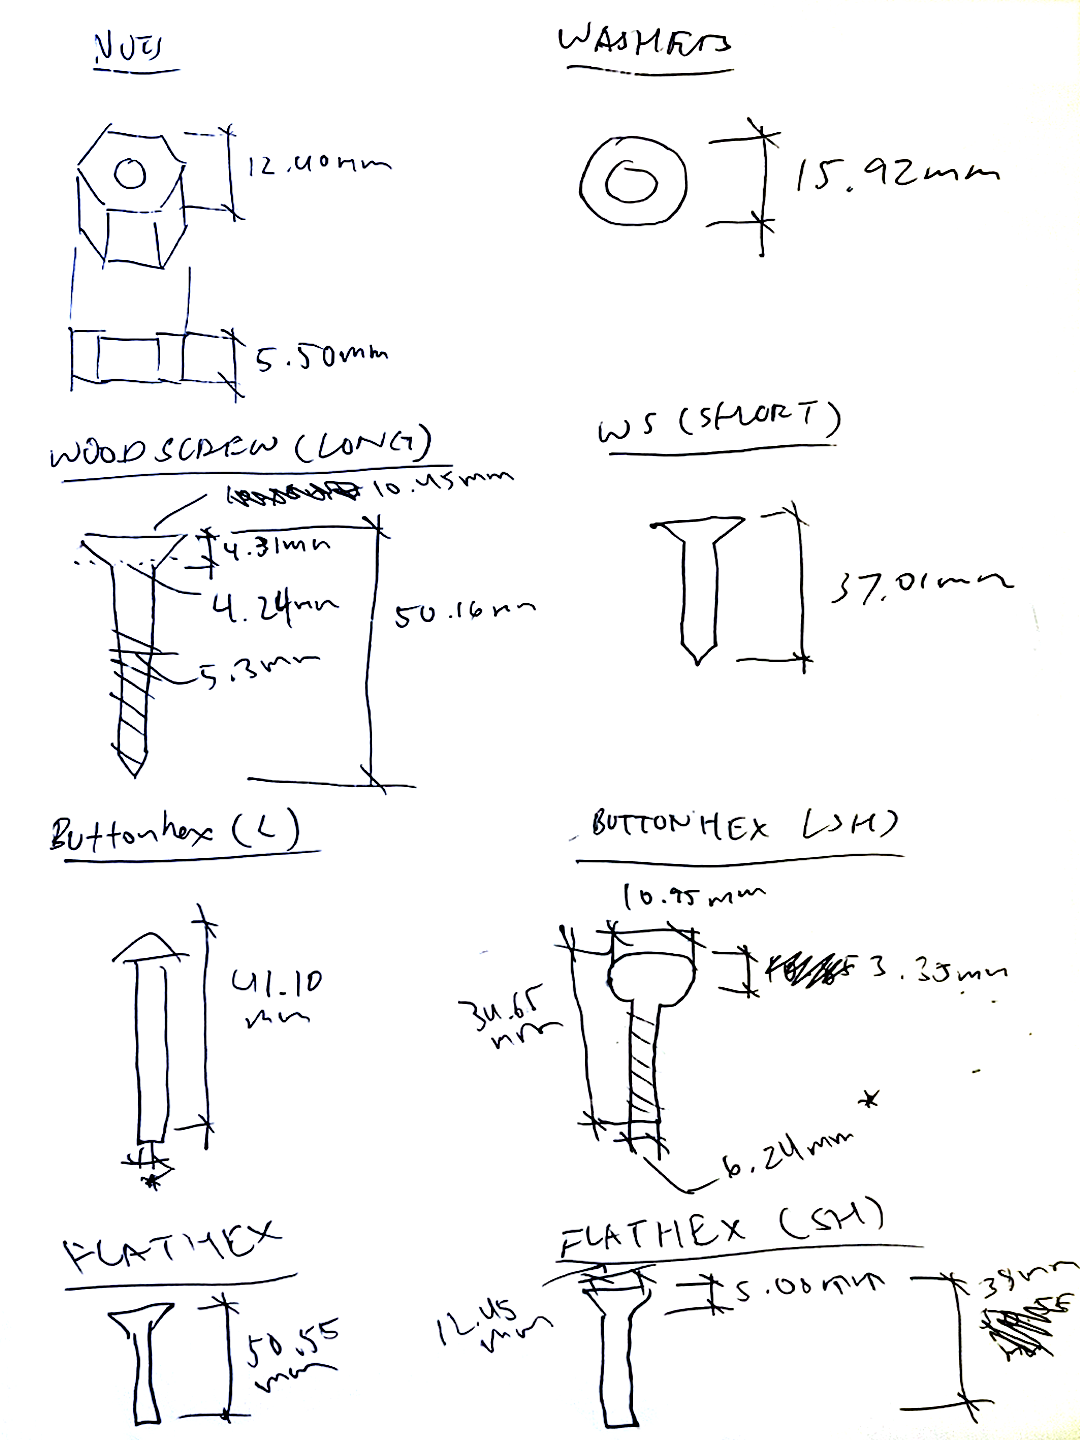 NUTS
WASHERS
12.40mm
15.92mm
5.50mm
WOODSCREW (LONG)
WS (SHORT)
10.45mm
4.31mm
4.24mm
50.16mm
5.3mm
37.01mm
Buttonhex (L)
BUTTONHEX (SH)
10.95mm
41.10
mm
3.35mm
34.65
mm
*
6.24mm
*
FLATHEX
FLATHEX (SH)
5.00mm
38mm
12.45
mm
50.55
mm